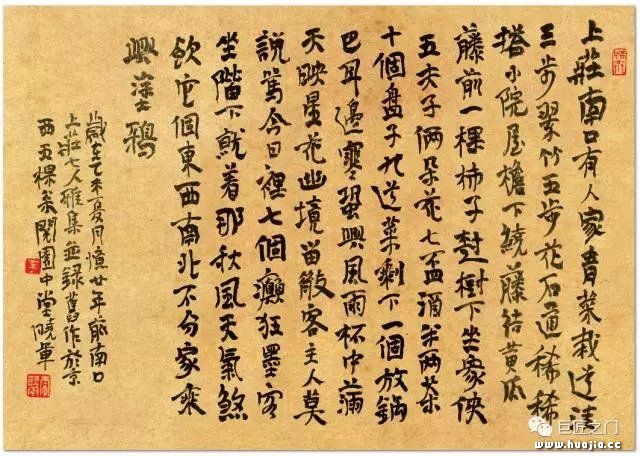 上莊南口有人家青菜栽
三步翠竹五步花石道稀稀
搭小院屋檐下繞藤结黄瓜
藤前一棵柿子樹下坐
五夫子俩朵花七盃酒半两茶
十個盘子九道菜剩下一個放鍋
巴耳邊寒蛩興風雨杯中滿
天映星花幽境留散客主人莫
說罵今日裡七個癲狂墨客
坐階下就着那秋風天氣煞
飲它個東西南北不分家乘
興塗鴉
歲在乙未夏月憶廿年前南口
上莊七人雅集並録舊作於京
西五棵閒園中堂曉
巨匠之门
www.huajia.cc